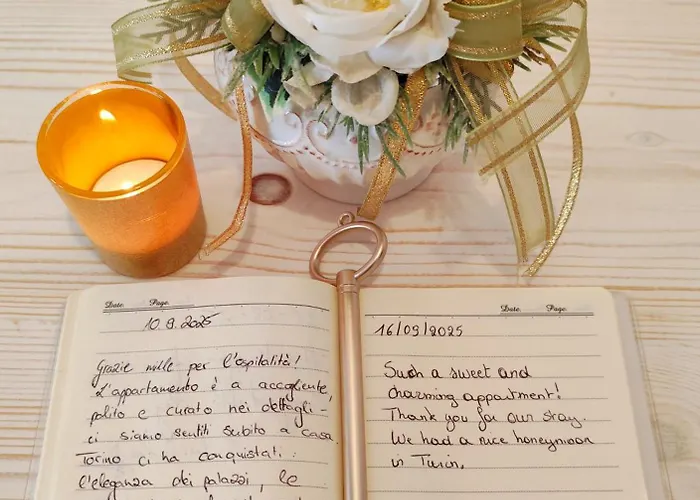 Date. Page.
10.9.2025
Grazie mille per l'ospitalità!
L'appartamento è a accogliente,
pulito e curato nei dettagli -
ci siamo sentiti subito a casa.
Torino ci ha conquistati:
l'eleganza dei palazzi, le
Date. Page.
16/09/2025
Such a sweet and
charming appartment!
Thank you for our stay.
We had a nice honeymoon
in Turin.